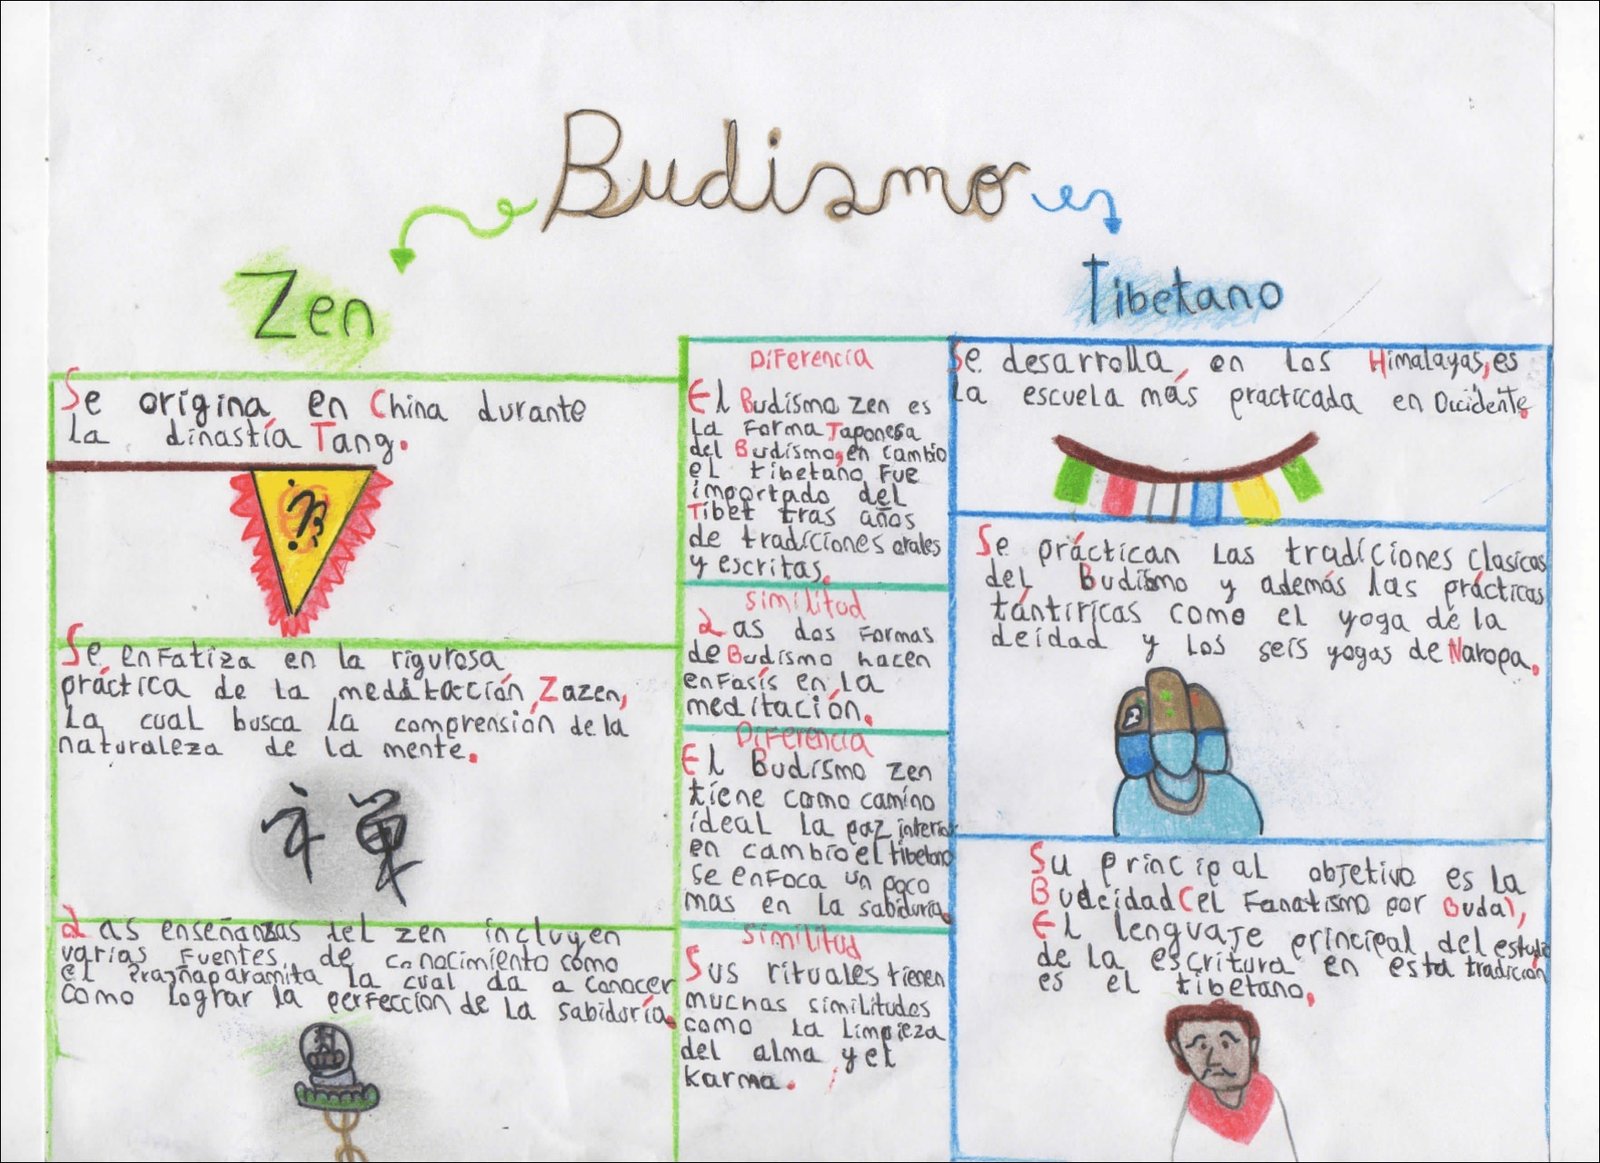 Budismo
Zen
Se origina en China durante
la dinastía Tang.
Se enfatiza en la rigurosa
práctica de la meditación, Zazen,
La cual busca la comprensión de la
naturaleza de la mente.
禅
Las enseñanzas del zen incluyen
varias fuentes de conocimiento como
el Prasñaparamita la cual da a conocer
como lograr la perfección de la sabiduría.
Diferencia
El Budísmo zen es
la forma Japonesa
del Budísmo, en cambio
el tibetano fue
importado del
Tíbet tras años
de tradiciones orales
y escritas.
similitud
Las dos formas
de Budísmo hacen
enfasís en la
meditación.
Diferencia
El Budísmo zen
tiene como camino
ideal la paz interior
en cambio el tibetano
se enfoca un poco
mas en la sabiduría.
similitud
Sus rituales tienen
muchas similitudes
como la limpieza
del alma y el
karma.
Tibetano
Se desarrolla, en los Himalayas, es
la escuela más practicada en Occidente.
Se práctican las tradíciones clasicas
del Budísmo y además las prácticas
tántiricas como el yoga de la
deidad y los seis yogas de Naropa.
Su principal objetivo es la
Budeidad (el fanatismo por Buda),
El lenguaje principal del estudio
de la escritura en esta tradición
es el tibetano.